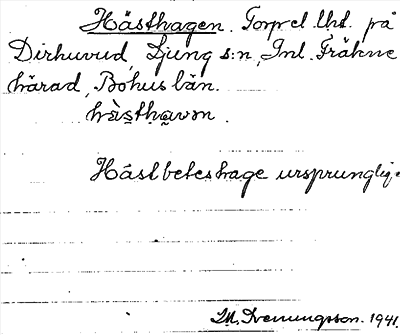 Hästhagen. Torp el. lht. på
Dirhuvud, Ljung s:n, Inl. Fräkne
härad, Bohus län.
hästhavən.
Hästbeteshage ursprunglig
1941.